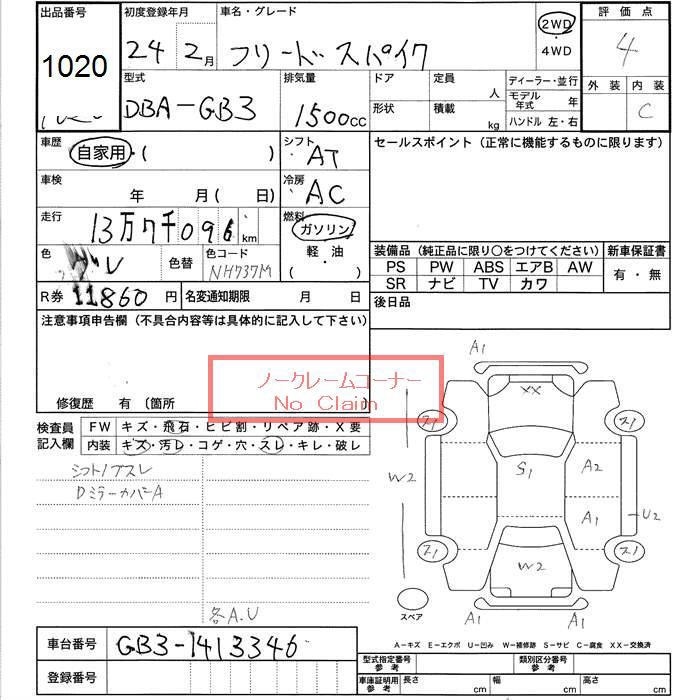 出品番号
1020
初度登録年月
24 2月
車名・グレード
フリードスパイク
2WD
・
4WD
評価点
4
外装 内装
C
型式
DBA-GB3
排気量
1500cc
ドア
形状
定員 人
積載 kg
ディーラー・並行
モデル年式 年
ハンドル 左・右
車歴
自家用・( )
シフト
AT
セールスポイント(正常に機能するものに限ります)
車検 年 月( 日)
冷房
AC
走行
13万7千096km
燃料
ガソリン
軽・油
( )
色
グレ
色替
色コード
NH737M
装備品(純正品に限り○をつけてください)
新車保証書
PS PW ABS エアB AW
SR ナビ TV カワ
有・無
R券 11860円
名変通知期限 月 日
後日品
注意事項申告欄(不具合内容等は具体的に記入して下さい)
ノークレームコーナー
No Claim
修復歴 有(箇所 )
検査員記入欄
FW キズ・飛石・ヒビ割・リペア跡・X要
内装 キズ・汚レ・コゲ・穴・スレ・キレ・破レ
シフトノブスレ
DミラーカバーA
各A.U
A1
XX
ス1 ス1
S1 A2
W2
A1 U2
ス1 ス1
W2
スペア
A1 A1
A-キズ E-エクボ U-凹み W-補修跡 S-サビ C-腐食 XX-交換済
車台番号 GB3-1413346
登録番号
型式指定番号参考
類別区分番号参考
車庫証明用参考 長さ cm 幅 cm 高さ cm